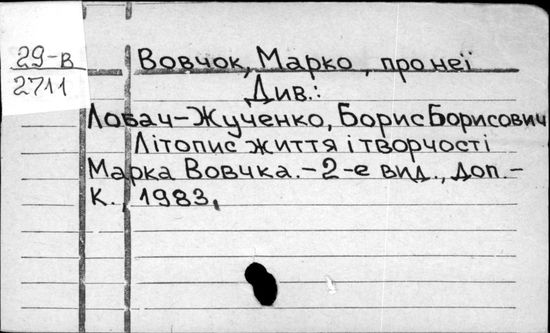 29-в
2711
Вовчок, Марко, про неї
Див.:
Лобач-Жученко, Борис Борисович
Літопис життя і творчості
Марка Вовчка. - 2-е вид., доп. -
К., 1983,